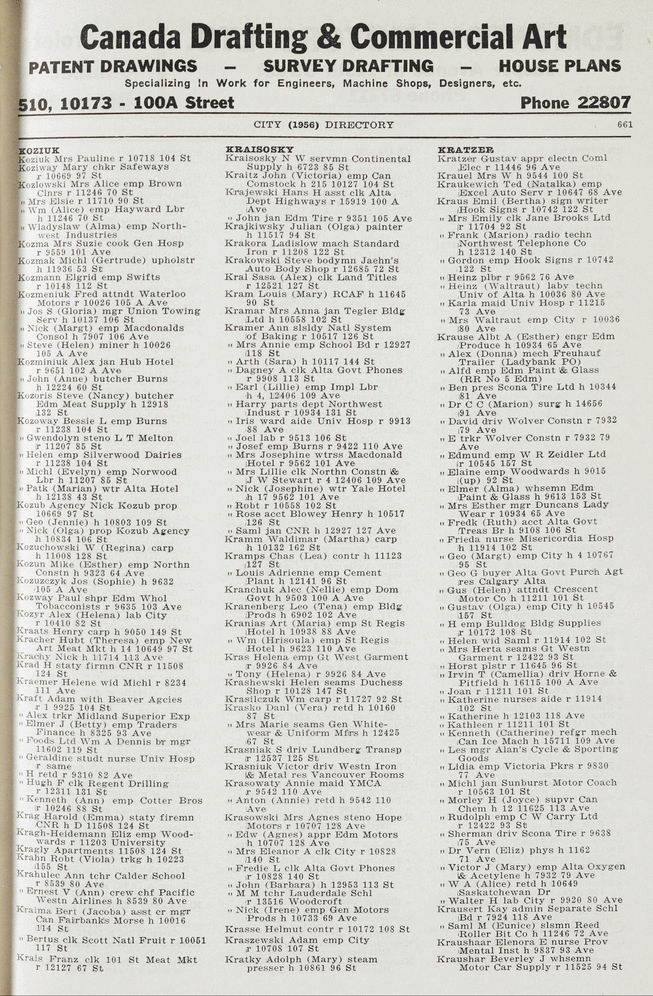 Canada Drafting & Commercial Art
PATENT DRAWINGS – SURVEY DRAFTING – HOUSE PLANS
Specializing In Work for Engineers, Machine Shops, Designers, etc.
510, 10173 - 100A Street Phone 22807
CITY (1956) DIRECTORY 661
KOZIUK
Koziuk Mrs Pauline r 10718 104 St
Koziwy Mary chkr Safeways
r 10669 97 St
Kozlowski Mrs Alice emp Brown
Clnrs r 11246 70 St
" Mrs Elsie r 11710 90 St
" Wm (Alice) emp Hayward Lbr
h 11246 70 St
" Wladyslaw (Alma) emp North-
west Industries
Kozma Mrs Suzie cook Gen Hosp
r 9559 101 Ave
Kozmak Michl (Gertrude) upholstr
h 11936 53 St
Kozmann Elgrid emp Swifts
r 10148 112 St
Kozmeniuk Fred attndt Waterloo
Motors r 10026 105 A Ave
" Jos S (Gloria) mgr Union Towing
Serv h 10137 106 St
" Nick (Margt) emp Macdonalds
Consol h 7907 106 Ave
" Steve (Helen) miner h 10026
105 A Ave
Kozminiuk Alex jan Hub Hotel
r 9651 102 A Ave
" John (Anne) butcher Burns
h 12224 60 St
Kozoris Steve (Nancy) butcher
Edm Meat Supply h 12918
132 St
Kozoway Bessie L emp Burns
r 11238 104 St
" Gwendolyn steno L T Melton
r 11207 85 St
" Helen emp Silverwood Dairies
r 11238 104 St
" Michl (Evelyn) emp Norwood
Lbr h 11207 85 St
" Patk (Marian) wtr Alta Hotel
h 12138 43 St
Kozub Agency Nick Kozub prop
10669 97 St
" Geo (Jennie) h 10803 109 St
" Nick (Olga) prop Kozub Agency
h 10834 106 St
Kozuchowski W (Regina) carp
h 11008 128 St
Kozun Mike (Esther) emp Northn
Constn h 9323 64 Ave
Kozuzczyk Jos (Sophie) h 9632
105 A Ave
Kozway Paul shpr Edm Whol
Tobacconists r 9635 103 Ave
Kozyr Alex (Helena) lab City
r 10410 82 St
Kraats Henry carp h 9050 149 St
Kracher Hubt (Theresa) emp New
Art Meat Mkt h 14 10649 97 St
Krachy Nick h 11714 113 Ave
Krad H staty firmn CNR r 11508
124 St
Kraemer Helene wid Michl r 8234
111 Ave
Kraft Adam with Beaver Agcies
r 1 9925 104 St
" Alex trkr Midland Superior Exp
" Elmer J (Betty) emp Traders
Finance h 8325 93 Ave
" Foods Ltd Wm A Dennis br mgr
11602 119 St
" Geraldine studt nurse Univ Hosp
r same
" H retd r 9310 82 Ave
" Hugh F clk Regent Drilling
r 12311 131 St
" Kenneth (Ann) emp Cotter Bros
r 10246 88 St
Krag Harold (Emma) staty firemn
CNR h D 11508 124 St
Kragh-Heidemann Eliz emp Wood-
wards r 11203 University
Kragly Apartments 11508 124 St
Krahn Robt (Viola) trkg h 10223
155 St
Krahulec Ann tchr Calder School
r 8539 80 Ave
" Ernest V (Ann) crew chf Pacific
Westn Airlines h 8539 80 Ave
Kraima Bert (Jacoba) asst cr mgr
Can Fairbanks Morse h 10016
114 St
" Bertus clk Scott Natl Fruit r 10051
117 St
Krais Franz clk 101 St Meat Mkt
r 12127 67 St
KRAISOSKY
Kraisosky N W servmn Continental
Supply h 6723 85 St
Kraitz John (Victoria) emp Can
Comstock h 215 10127 104 St
Krajewski Hans H asst clk Alta
Dept Highways r 15919 100 A
Ave
" John jan Edm Tire r 9351 105 Ave
Krajkiwsky Julian (Olga) painter
h 11517 94 St
Krakora Ladislow mach Standard
Iron r 11208 122 St
Krakowski Steve bodymn Jaehn's
Auto Body Shop r 12685 72 St
Kral Sasa (Alex) clk Land Titles
r 12521 127 St
Kram Louis (Mary) RCAF h 11645
90 St
Kramar Mrs Anna jan Tegler Bldg
Ltd h 10558 102 St
Kramer Ann slsldy Natl System
of Baking r 10517 126 St
" Mrs Annie emp School Bd r 12927
118 St
" Arth (Sara) h 10117 144 St
" Dagney A clk Alta Govt Phones
r 9908 113 St
" Earl (Lillie) emp Impl Lbr
h 4, 12406 109 Ave
" Harry parts dept Northwest
Indust r 10934 131 St
" Iris ward aide Univ Hosp r 9913
88 Ave
" Joel lab r 9513 106 St
" Josef emp Burns r 9422 110 Ave
" Mrs Josephine wtrss Macdonald
Hotel r 9562 101 Ave
" Mrs Lillie clk Northn Constn &
J W Stewart r 4 12406 109 Ave
" Nick (Josephine) wtr Yale Hotel
h 17 9562 101 Ave
" Robt r 10558 102 St
" Rose acct Blowey Henry h 10517
126 St
" Saml jan CNR h 12927 127 Ave
Kramm Waldimar (Martha) carp
h 10132 162 St
Kramps Chas (Lea) contr h 11123
127 St
" Louis Adrienne emp Cement
Plant h 12141 96 St
Kranchuk Alec (Nellie) emp Dom
Govt h 9503 100 A Ave
Kranenberg Leo (Tena) emp Bldg
Prods h 6902 102 Ave
Kranias Art (Maria) emp St Regis
Hotel h 10938 88 Ave
" Wm (Hrisoula) emp St Regis
Hotel h 9623 110 Ave
Kras Helena emp Gt West Garment
r 9926 84 Ave
" Tony (Helena) r 9926 84 Ave
Krashewski Helen seams Duchess
Shop r 10128 147 St
Krasilczuk Wm carp r 11727 92 St
Krasko Danl (Vera) retd h 10160
87 St
" Mrs Marie seams Gen White-
wear & Uniform Mfrs h 12425
67 St
Krasniak S driv Lundberg Transp
r 12537 125 St
Krasniuk Victor driv Westn Iron
& Metal res Vancouver Rooms
Krasowaty Annie maid YMCA
r 9542 110 Ave
" Anton (Annie) retd h 9542 110
Ave
Krasowski Mrs Agnes steno Hope
Motors r 10707 128 Ave
" Edw (Agnes) appr Edm Motors
h 10707 128 Ave
" Mrs Eleanor A clk City r 10828
140 St
" Fredie L clk Alta Govt Phones
r 10828 140 St
" John (Barbara) h 12953 113 St
" M M tchr Lauderdale Schl
r 13516 Woodcroft
" Nick (Irene) emp Gen Motors
Prods h 10733 69 Ave
Krasse Helmut contr r 10172 108 St
Kraszewski Adam emp City
r 10708 107 St
Kratky Adolph (Mary) steam
presser h 10861 96 St
KRATZER
Kratzer Gustav appr electn Coml
Elec r 11446 96 Ave
Krauel Mrs W h 9544 100 St
Kraukewich Ted (Natalka) emp
Excel Auto Serv r 10647 68 Ave
Kraus Emil (Bertha) sign writer
Hook Signs r 10742 122 St
" Mrs Emily clk Jane Brooks Ltd
r 11704 92 St
" Frank (Marion) radio techn
Northwest Telephone Co
h 12312 140 St
" Gordon emp Hook Signs r 10742
122 St
" Heinz plbr r 9562 76 Ave
" Heinz (Waltraut) laby techn
Univ of Alta h 10036 80 Ave
" Karla maid Univ Hosp r 11215
73 Ave
" Mrs Waltraut emp City r 10036
80 Ave
Krause Albt A (Esther) engr Edm
Produce h 10934 65 Ave
" Alex (Donna) mech Freuhauf
Trailer (Ladybank PO)
" Alfd emp Edm Paint & Glass
(RR No 5 Edm)
" Ben pres Scona Tire Ltd h 10344
81 Ave
" Dr C C (Marion) surg h 14656
91 Ave
" David driv Wolver Constn r 7932
79 Ave
" E trkr Wolver Constn r 7932 79
Ave
" Edmund emp W R Zeidler Ltd
r 10545 157 St
" Elaine emp Woodwards h 9015
(up) 92 St
" Elmer (Alma) whsemn Edm
Paint & Glass h 9613 153 St
" Mrs Esther mgr Duncans Lady
Wear r 10934 65 Ave
" Fredk (Ruth) acct Alta Govt
Treas Br h 9108 106 St
" Frieda nurse Misericordia Hosp
h 11914 102 St
" Geo (Margt) emp City h 4 10767
95 St
" Geo G buyer Alta Govt Purch Agt
res Calgary Alta
" Gus (Helen) attndt Crescent
Motor Co h 11211 101 St
" Gustav (Olga) emp City h 10545
157 St
" H emp Bulldog Bldg Supplies
r 10172 108 St
" Helen wid Saml r 11914 102 St
" Mrs Herta seams Gt Westn
Garment r 12422 93 St
" Horst plstr r 11645 96 St
" Irvin T (Camellia) driv Horne &
Pitfield h 16115 100 A Ave
" Joan r 11211 101 St
" Katherine nurses aide r 11914
102 St
" Katherine h 12103 118 Ave
" Kathleen r 11211 101 St
" Kenneth (Catherine) refgr mech
Can Ice Mach h 15711 109 Ave
" Les mgr Alan's Cycle & Sporting
Goods
" Lidia emp Victoria Pkrs r 9830
77 Ave
" Michl jan Sunburst Motor Coach
r 10563 101 St
" Morley H (Joyce) supvr Can
Chem h 12 11625 113 Ave
" Rudolph emp C W Carry Ltd
r 12422 93 St
" Sherman driv Scona Tire r 9638
75 Ave
" Dr Vern (Eliz) phys h 1162
71 Ave
" Victor J (Mary) emp Alta Oxygen
& Acetylene h 7932 79 Ave
" W A (Alice) retd h 10649
Saskatchewan Dr
" Walter H lab City r 9920 80 Ave
Krausert Kay admin Separate Schl
Bd r 7924 118 Ave
" Saml M (Eunice) slsmn Reed
Roller Bit Co h 11246 72 Ave
Kraushaar Elenora E nurse Prov
Mental Inst h 9837 93 Ave
Kraushar Beverley J whsemn
Motor Car Supply r 11525 94 St